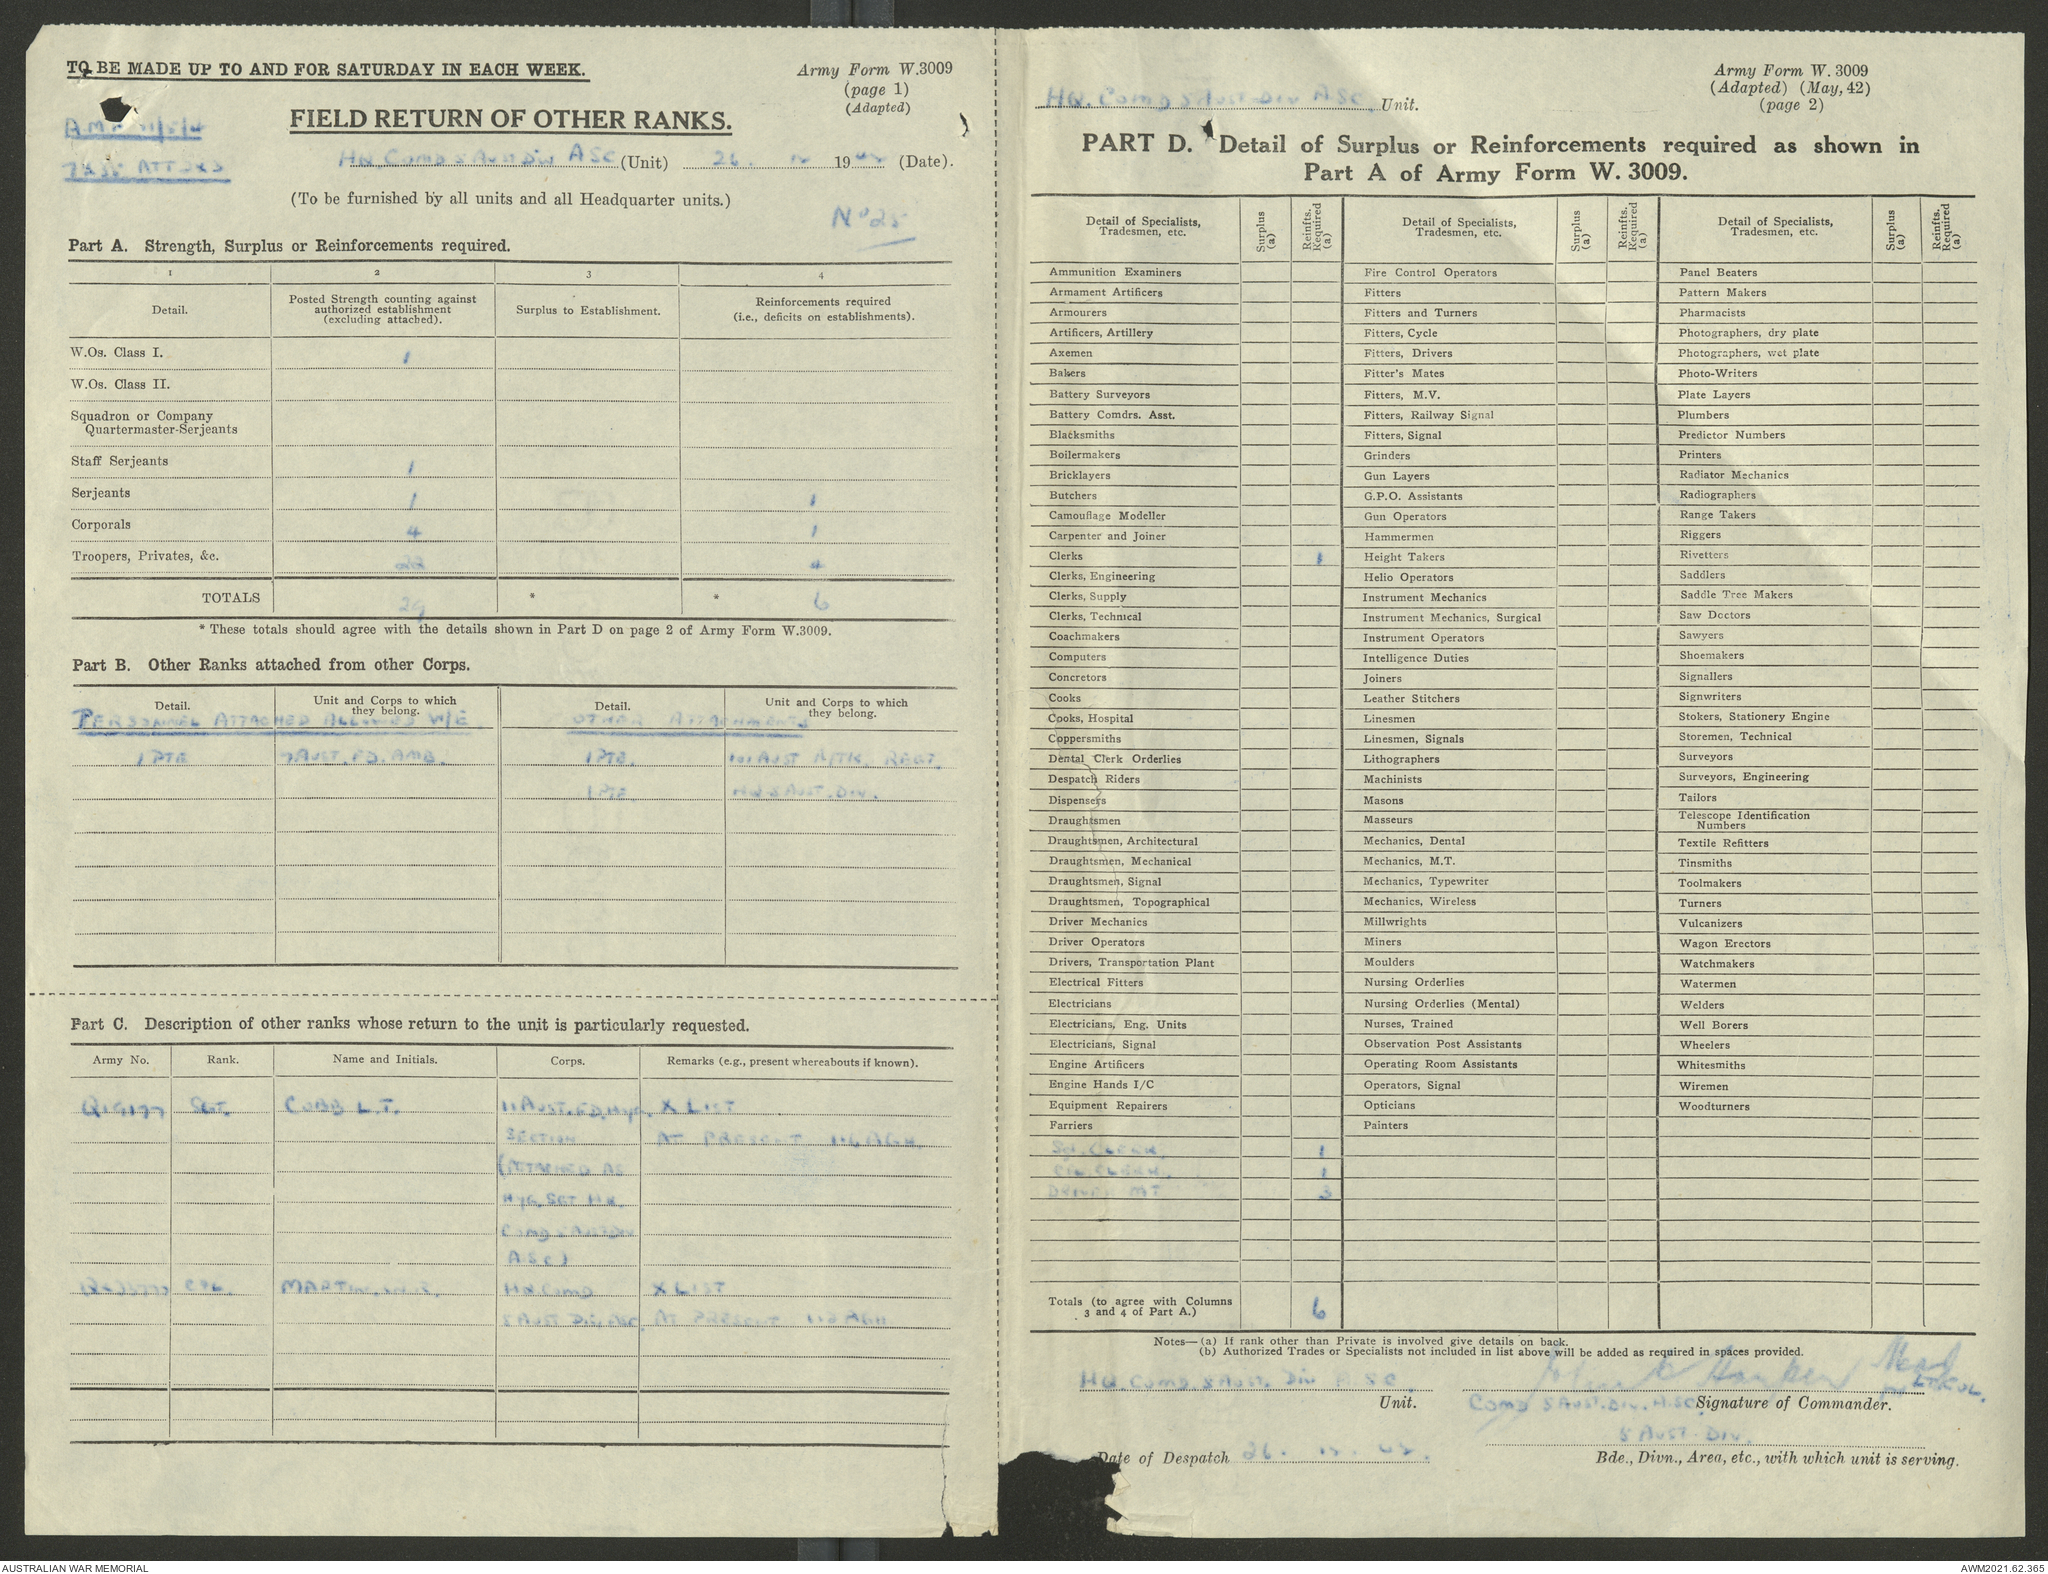 TO BE MADE UP TO AND FOR SATURDAY IN EACH WEEK.
Army Form W.3009
(page 1)
(Adapted)
FIELD RETURN OF OTHER RANKS.
HQ. Comd 5 Aust Div ASC (Unit) 26. 12 1942 (Date).
(To be furnished by all units and all Headquarter units.)
No 25
Part A. Strength, Surplus or Reinforcements required.
1 2 3 4
Detail. Posted Strength counting against authorized establishment (excluding attached). Surplus to Establishment. Reinforcements required (i.e., deficits on establishments).
W.Os. Class I. 1
W.Os. Class II.
Squadron or Company Quartermaster-Serjeants
Staff Serjeants 1
Serjeants 1 1
Corporals 4 1
Troopers, Privates, &c. 22 4
TOTALS 29 * * 6
* These totals should agree with the details shown in Part D on page 2 of Army Form W.3009.
Part B. Other Ranks attached from other Corps.
Detail. Unit and Corps to which they belong. Detail. Unit and Corps to which they belong.
PERSONNEL ATTACHED ALLOWED W/E OTHER ATTACHMENTS
1 PTE AUST. FD. AMB. 1 PTE. 101 AUST A/TK. REGT.
1 PTE. HQ 5 AUST. DIV.
Part C. Description of other ranks whose return to the unit is particularly requested.
Army No. Rank. Name and Initials. Corps. Remarks (e.g., present whereabouts if known).
SGT. CUBB L.T. 11 AUST. FD. Hyg. X LIST
SECTION AT PRESENT 116 AGH.
(ATTACHED AS
Hyg. SGT HQ.
COMD 5 AUST DIV
ASC)
CPL. MARTIN. HQ COMD X LIST
5 AUST DIV ASC. AT PRESENT 116 AGH
HQ. Comd 5 Aust Div ASC. Unit.
Army Form W. 3009
(Adapted) (May, 42)
(page 2)
PART D. Detail of Surplus or Reinforcements required as shown in
Part A of Army Form W. 3009.
Detail of Specialists, Tradesmen, etc. Surplus (a) Reinfts. Required (a) Detail of Specialists, Tradesmen, etc. Surplus (a) Reinfts. Required (a) Detail of Specialists, Tradesmen, etc. Surplus (a) Reinfts. Required (a)
Ammunition Examiners Fire Control Operators Panel Beaters
Armament Artificers Fitters Pattern Makers
Armourers Fitters and Turners Pharmacists
Artificers, Artillery Fitters, Cycle Photographers, dry plate
Axemen Fitters, Drivers Photographers, wet plate
Bakers Fitter's Mates Photo-Writers
Battery Surveyors Fitters, M.V. Plate Layers
Battery Comdrs. Asst. Fitters, Railway Signal Plumbers
Blacksmiths Fitters, Signal Predictor Numbers
Boilermakers Grinders Printers
Bricklayers Gun Layers Radiator Mechanics
Butchers G.P.O. Assistants Radiographers
Camouflage Modeller Gun Operators Range Takers
Carpenter and Joiner Hammermen Riggers
Clerks 1 Height Takers Rivetters
Clerks, Engineering Helio Operators Saddlers
Clerks, Supply Instrument Mechanics Saddle Tree Makers
Clerks, Technical Instrument Mechanics, Surgical Saw Doctors
Coachmakers Instrument Operators Sawyers
Computers Intelligence Duties Shoemakers
Concretors Joiners Signallers
Cooks Leather Stitchers Signwriters
Cooks, Hospital Linesmen Stokers, Stationery Engine
Coppersmiths Linesmen, Signals Storemen, Technical
Dental Clerk Orderlies Lithographers Surveyors
Despatch Riders Machinists Surveyors, Engineering
Dispensers Masons Tailors
Draughtsmen Masseurs Telescope Identification Numbers
Draughtsmen, Architectural Mechanics, Dental Textile Refitters
Draughtsmen, Mechanical Mechanics, M.T. Tinsmiths
Draughtsmen, Signal Mechanics, Typewriter Toolmakers
Draughtsmen, Topographical Mechanics, Wireless Turners
Driver Mechanics Millwrights Vulcanizers
Driver Operators Miners Wagon Erectors
Drivers, Transportation Plant Moulders Watchmakers
Electrical Fitters Nursing Orderlies Watermen
Electricians Nursing Orderlies (Mental) Welders
Electricians, Eng. Units Nurses, Trained Well Borers
Electricians, Signal Observation Post Assistants Wheelers
Engine Artificers Operating Room Assistants Whitesmiths
Engine Hands I/C Operators, Signal Wiremen
Equipment Repairers Opticians Woodturners
Farriers Painters
CLERK. 1
CPL. CLERK. 1
DRIVER MT 3
Totals (to agree with Columns 3 and 4 of Part A.) 6
Notes—(a) If rank other than Private is involved give details on back.
(b) Authorized Trades or Specialists not included in list above will be added as required in spaces provided.
HQ. COMD. 5 AUST. DIV A.S.C. Unit.
LT COL.
COMD 5 AUST. DIV. A.SC. Signature of Commander.
5 AUST. DIV.
Date of Despatch 26. 12. 42.
Bde., Divn., Area, etc., with which unit is serving.
AUSTRALIAN WAR MEMORIAL
AWM2021.62.365